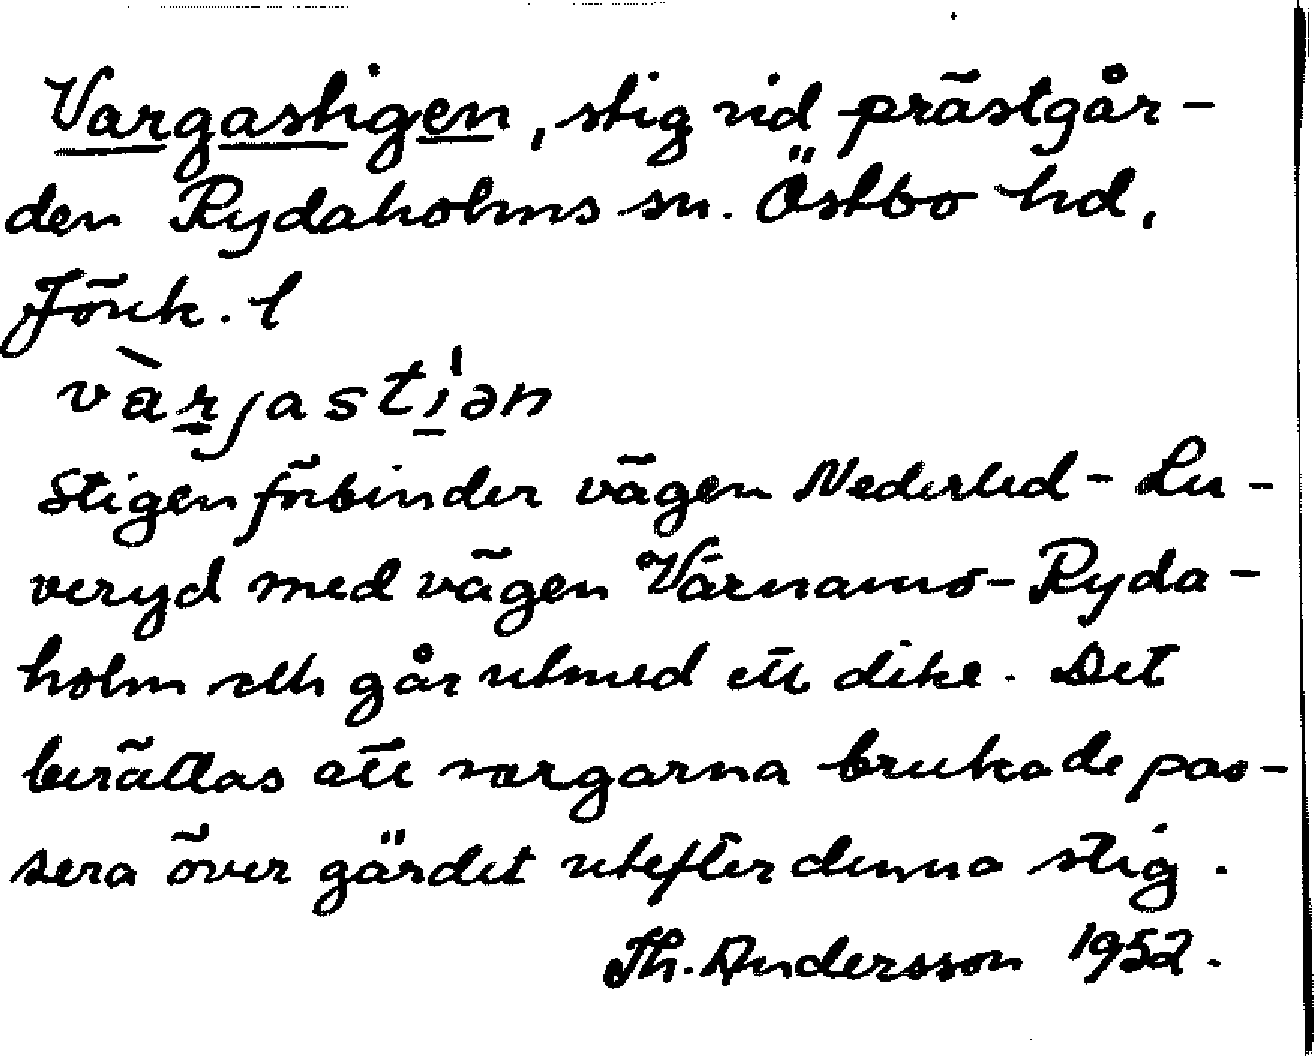 Vargastigen, stig vid prästgår-
den Rydaholms sn. Östbo hd,
Jönk. l
vàrjasti'ən
Stigen förbinder vägen Nederled - Lu-
veryd med vägen Värnamo - Ryda-
holm och går utmed ett dike. Det
berättas att vargarna brukade pas-
sera över gärdet utefter denna stig.
Th. Andersson 1952.